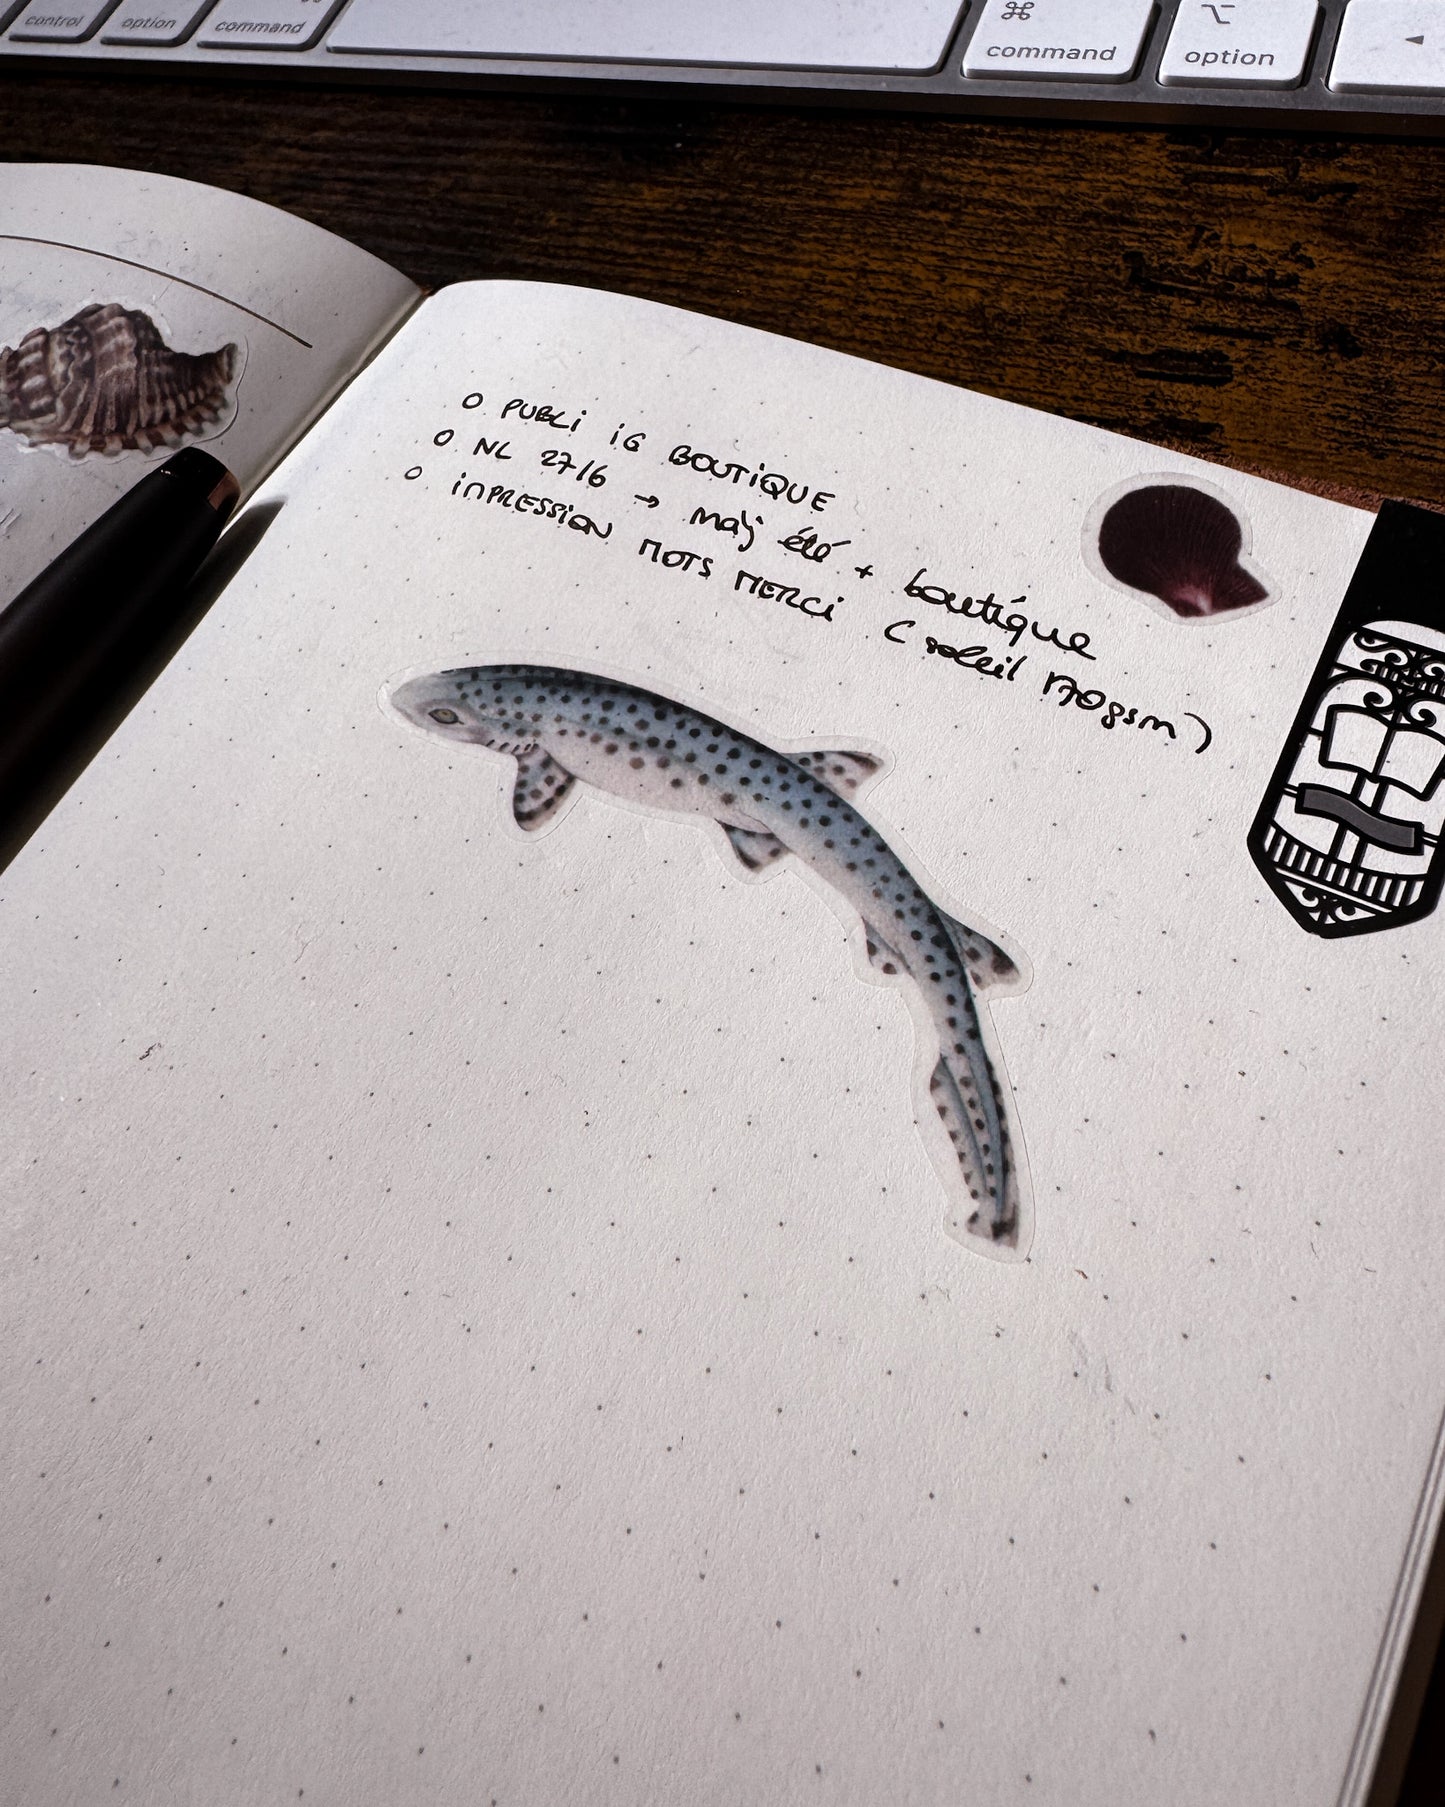 control option command ⌘ command ⌥ option
O PUBLI iG BOUTiQUE
O NL 27/6 → màj été + boutique
O iMPRESSiON MOTS MERCi (soleil 170gsm)